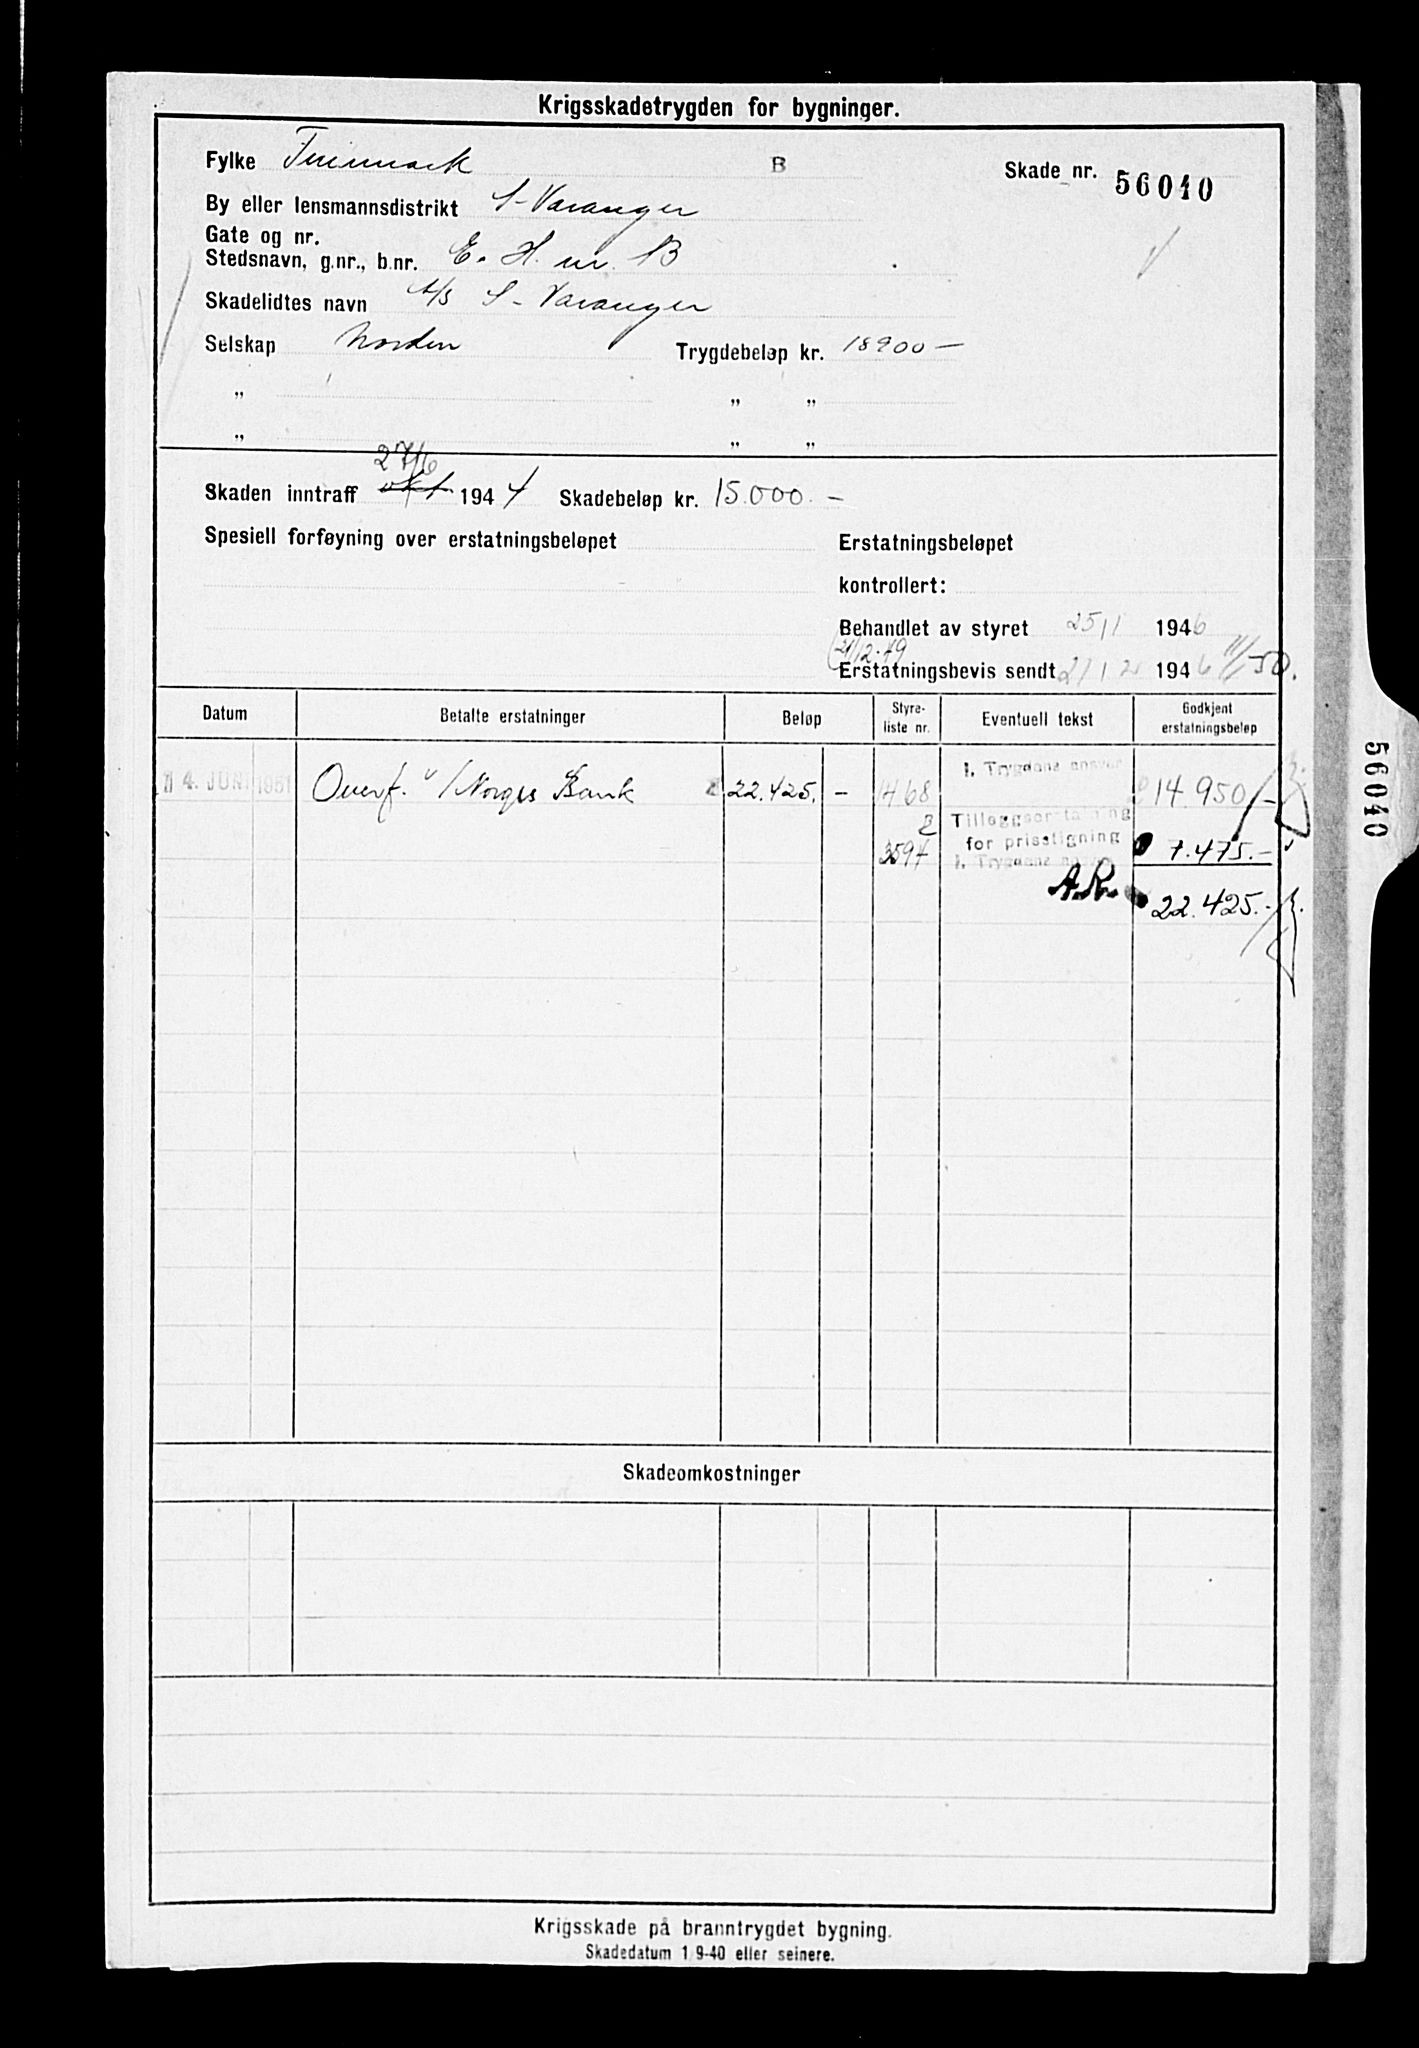 Krigsskadetrygden for bygninger.
Fylke Finnmark B Skade nr. 56040
By eller lensmannsdistrikt S-Varanger
Gate og nr.
Stedsnavn, g.nr., b.nr. E. H. nr. B
Skadelidtes navn A/S S-Varanger
Selskap Norden Trygdebeløp kr. 18900 —
„ „ „
„ „ „
27/6
Skaden inntraff okt. 1944 Skadebeløp kr. 15.000. —
Spesiell forføyning over erstatningsbeløpet Erstatningsbeløpet
kontrollert:
Behandlet av styret 25/1 1946
Erstatningsbevis sendt 1946 50.
Datum Betalte erstatninger Beløp Styre-liste nr. Eventuell tekst Godkjent erstatningsbeløp
4. JUNI 1951 Overf. v/Norges Bank 22.425. - 1468 1. Trygdens ansvar 14.950,-
2 Tilleggserstatning
3594 for prisstigning 7.475.-
1. Trygdens ansvar
A.R. 22.425.-
56040
Skadeomkostninger
Krigsskade på branntrygdet bygning.
Skadedatum 1/9-40 eller seinere.